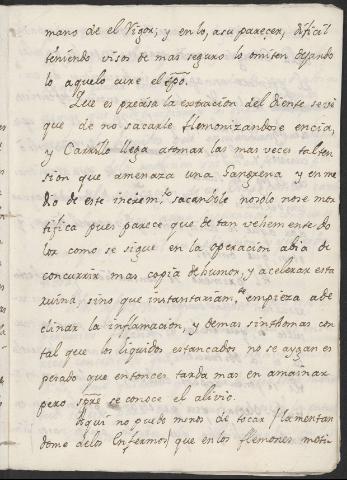 mano de el Vigor; y en lo, a su parecer, dificil
teniendo visos de mas seguro lo omiten dejando
lo aquelo cure el tpõ.
Que es precisa la extracion del diente se ve
que de no sacarle flemonizandose encia,
y Carrillo llega atomar las mas veces tal ten
sion que amenaza una Gangrena y en me
dio de este increm.to sacandole no solo no se mor
tifica pues parece que de tan vehemente do
lor como se sigue en la operacion abia de
concurrir mas copia de humor, y acelerar esta
ruina, sino que instantaniam.te empieza a de
clinar la inflamacion, y demas sinthomas con
tal que los liquidos estancados no se aygan es
pesado que entonces tarda mas en amainar
pero spre se conoce el alivio.
Aqui no puedo menos de tocar / lamentan
dome de los Enfermos / que en los flemones moti-